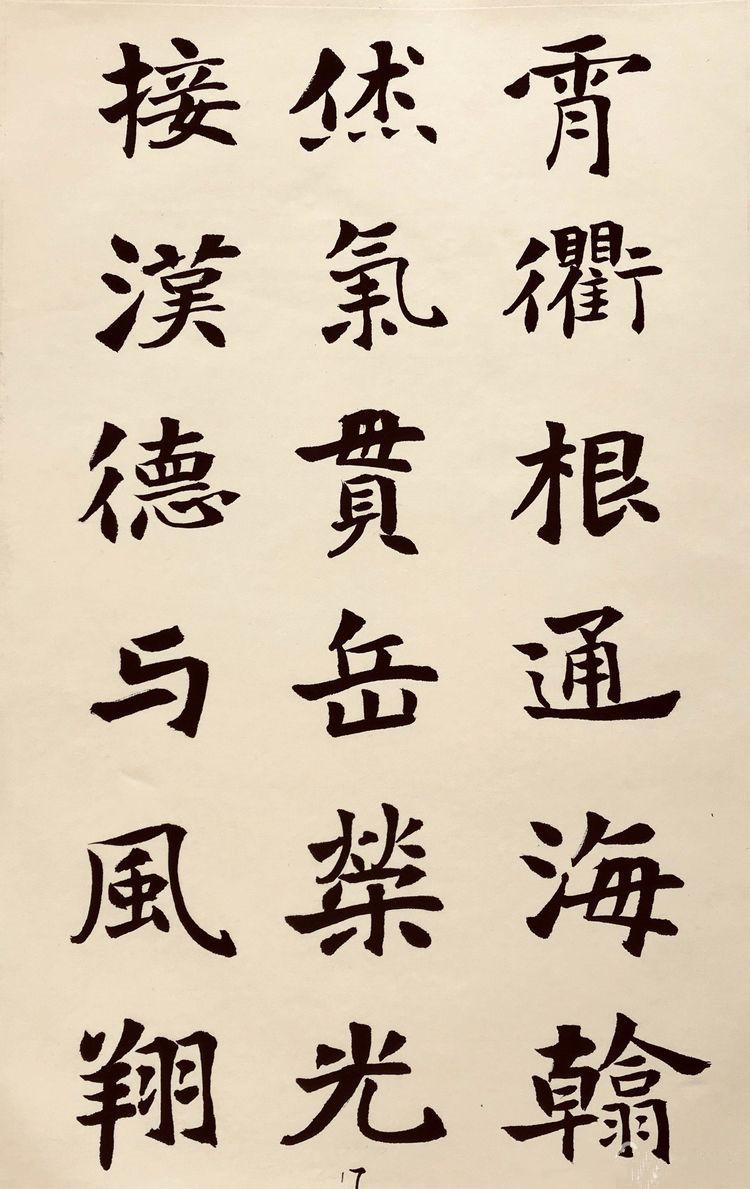 霄衢根通海翰
然氣貫岳榮光
接漢德与風翔
17